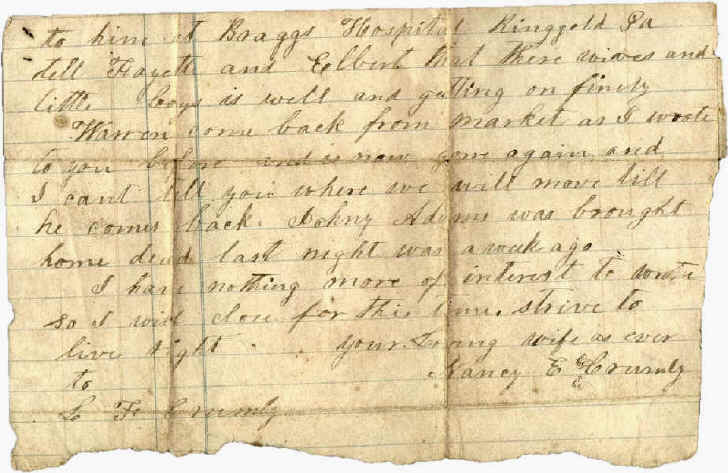 to him at Braggs Hospital Ringgold Ga
tell Fayett and Elbert that there wives and
little boys is well and getting on finely
Warren come back from market as I wrote
to you before and is now gone again and
I cant tell you where we will move till
he comes back. Johny Adams was brought
home dead last night was a week ago
I have nothing more of interest to write
so I will close for this time. strive to
live right your Loving wife as ever
to Nancy E Crumly
L F Crumly